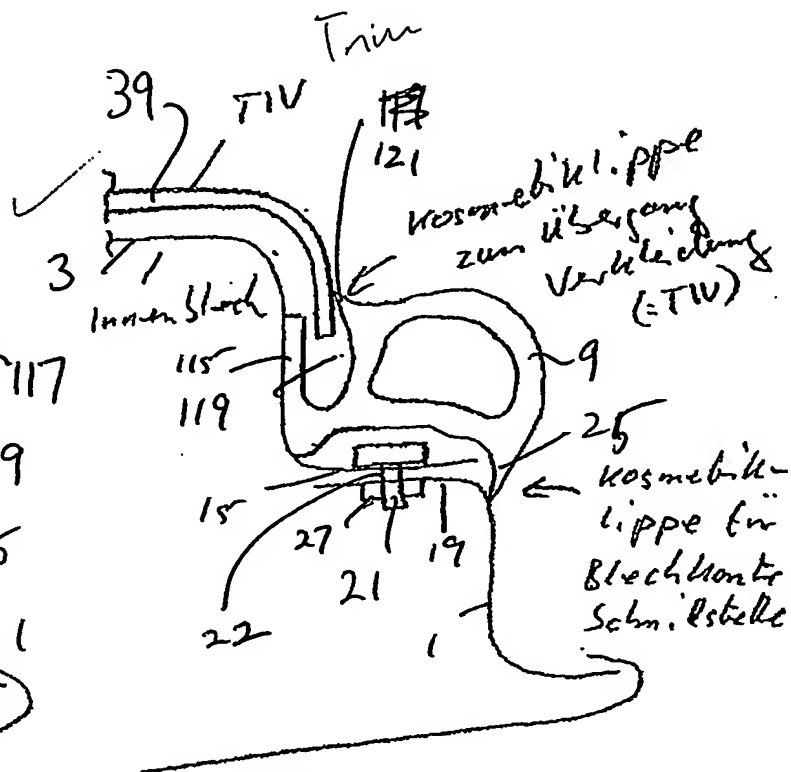 Trim
39
TIV
121
Kosmetiklippe
zum Übergang
Verkleidung
(=TIV)
3
Innenblech
115
119
9
117
9
5
1
25
Kosmetik-
lippe für
Blechkante
Schnittstelle
15
27
21
19
22
1